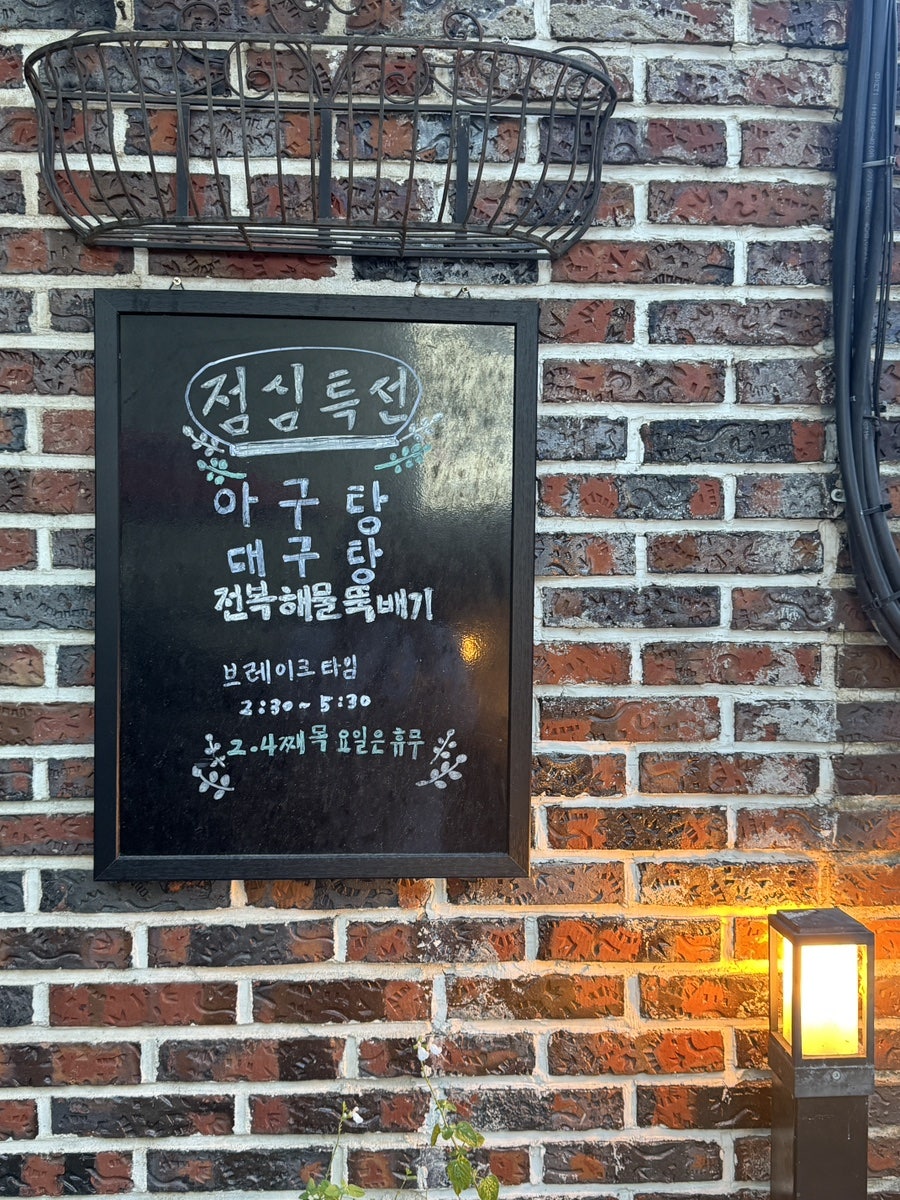 점심특선
아구탕
대구탕
전복해물뚝배기
브레이크타임
2:30~5:30
2.4째목요일은휴무